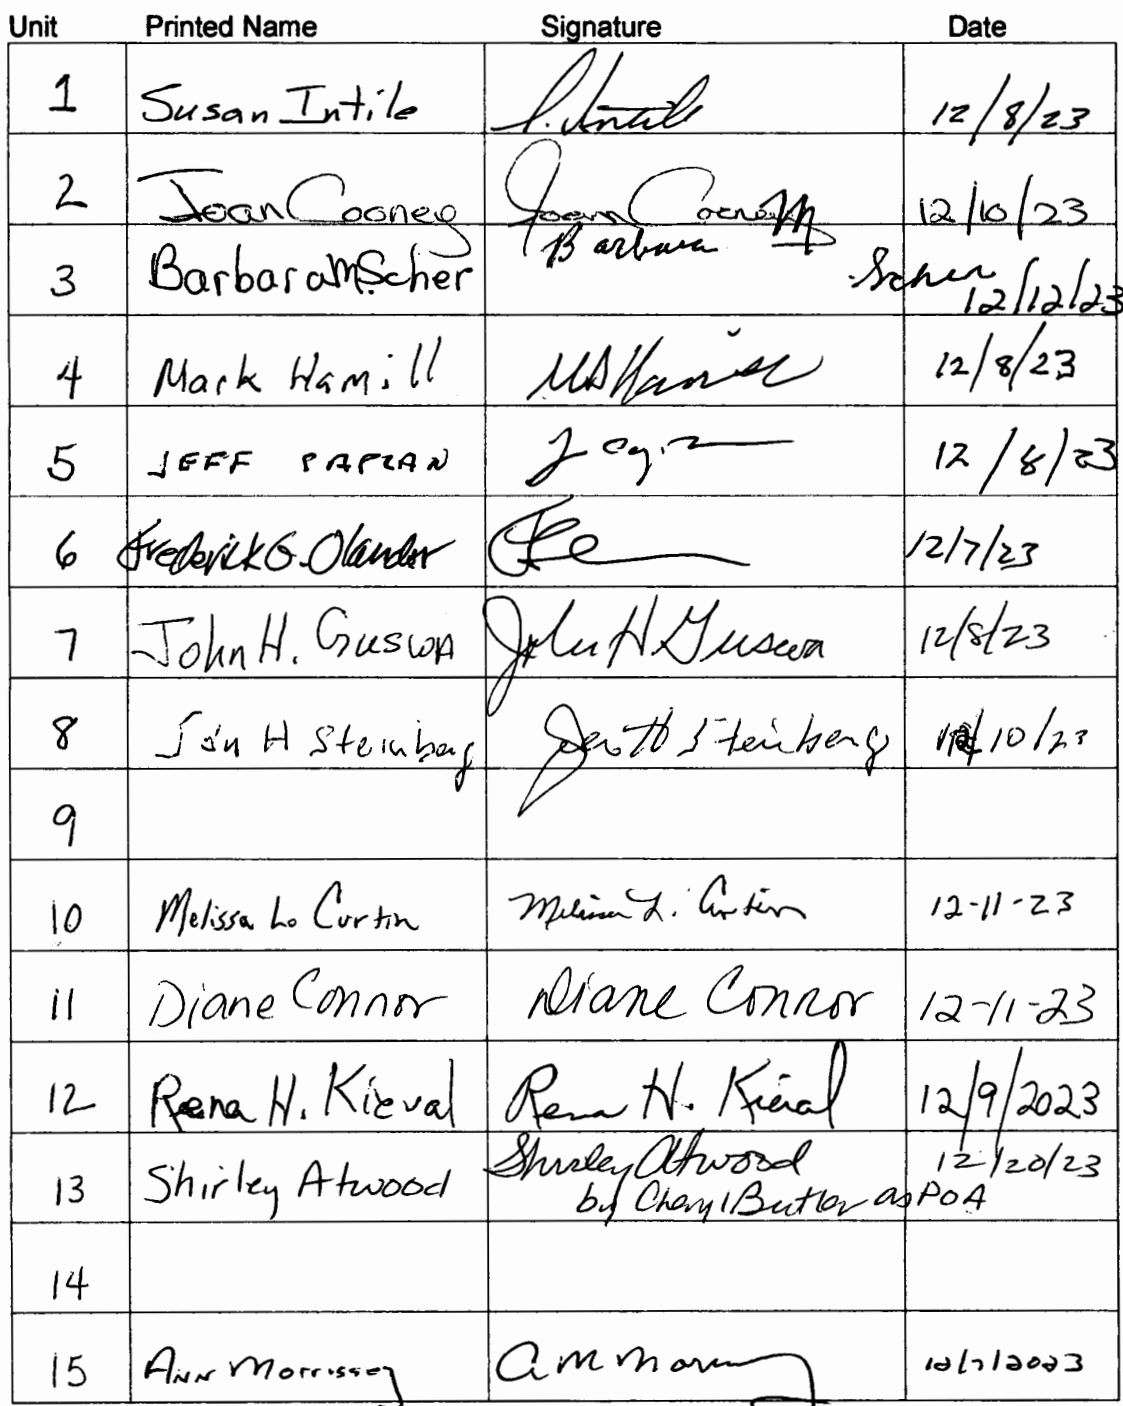 Unit Printed Name Signature Date
1 Susan Intile S. Intile 12/8/23
2 Joan Cooney Joan Cooney 12/10/23
3 Barbara M. Scher Barbara M Scher 12/12/23
4 Mark Hamill 12/8/23
5 JEFF 12/8/23
6 Frederick G. Olander 12/7/23
7 John H. Guswa John H Guswa 12/8/23
8 Jon H Steinberg Jon H Steinberg 12/10/23
9
10 Melissa L. Curtin Melissa L. Curtin 12-11-23
11 Diane Connor Diane Connor 12-11-23
12 Rena H. Kieval Rena H. Kieval 12/9/2023
13 Shirley Atwood Shirley Atwood 12/20/23
by Cheryl Butler as POA
14
15 Ann Morrissey 12/7/2023